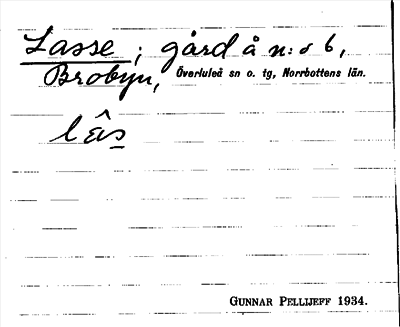 Lasse ; gård å n:o 6,
Brobyn, Överluleå sn o. tg, Norrbottens län.
lâs
GUNNAR PELLIJEFF 1934.